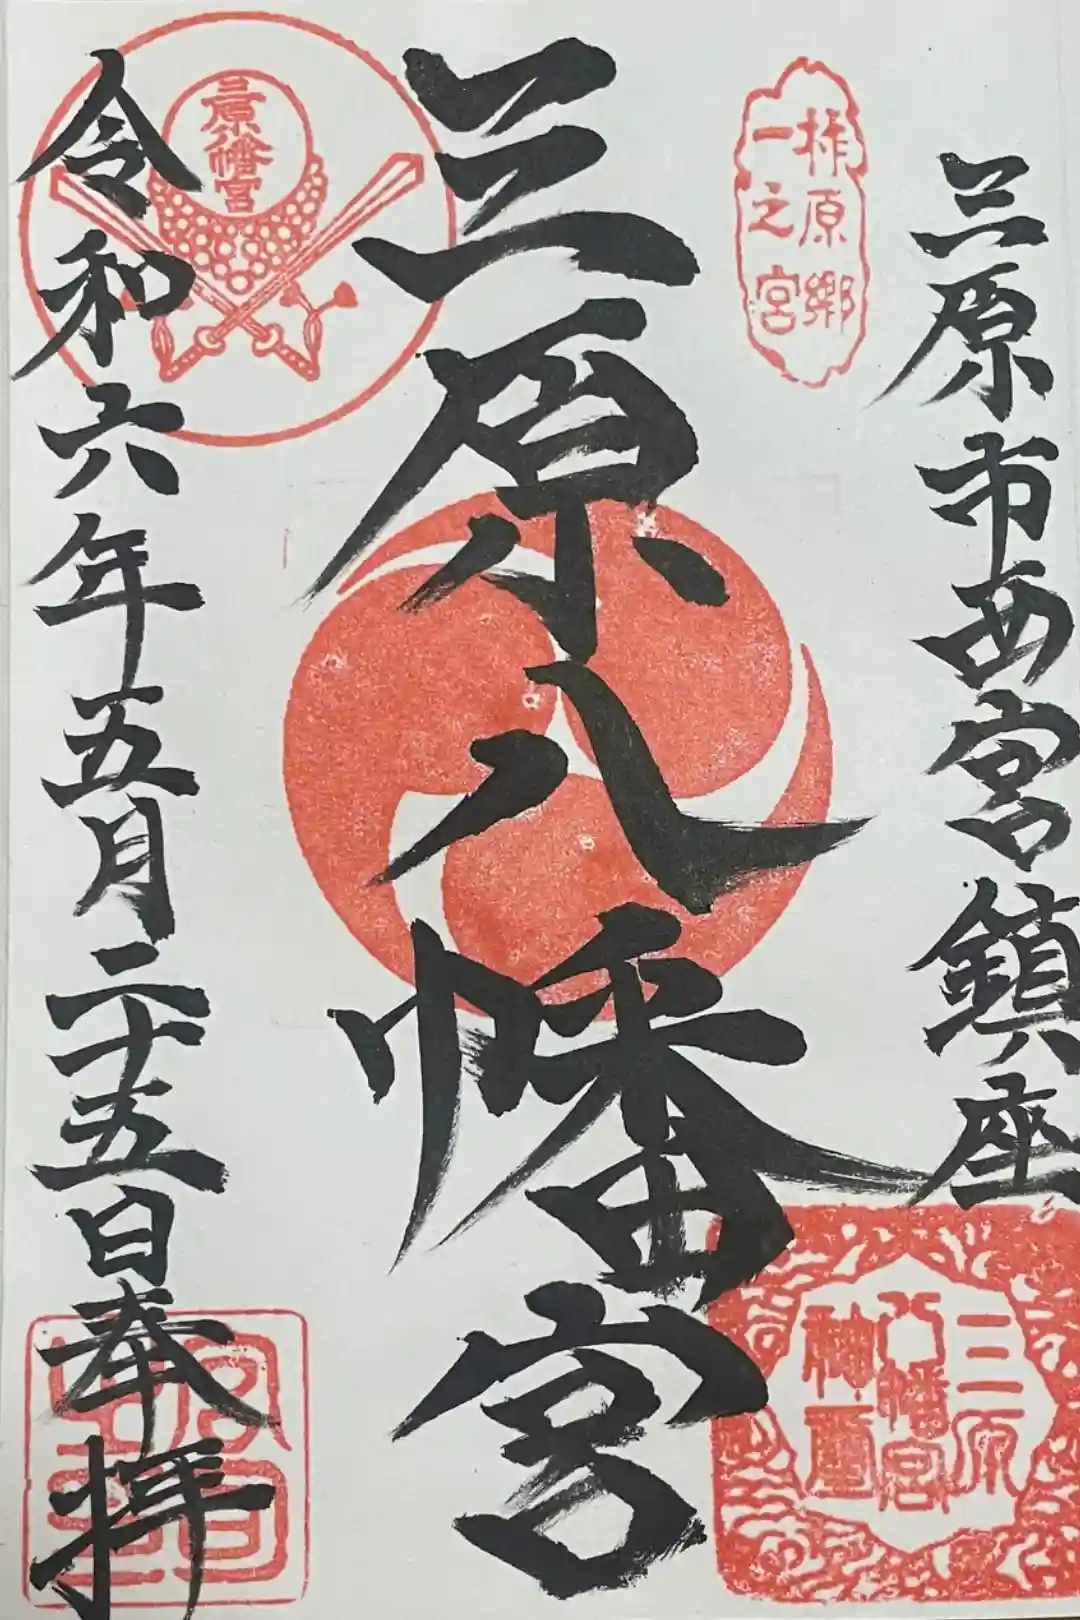 三原市西宮鎮座
柞原郷
一之宮
三原
八幡宮
神璽
三原八幡宮
三原八幡宮
令和六年五月二十五日奉拝